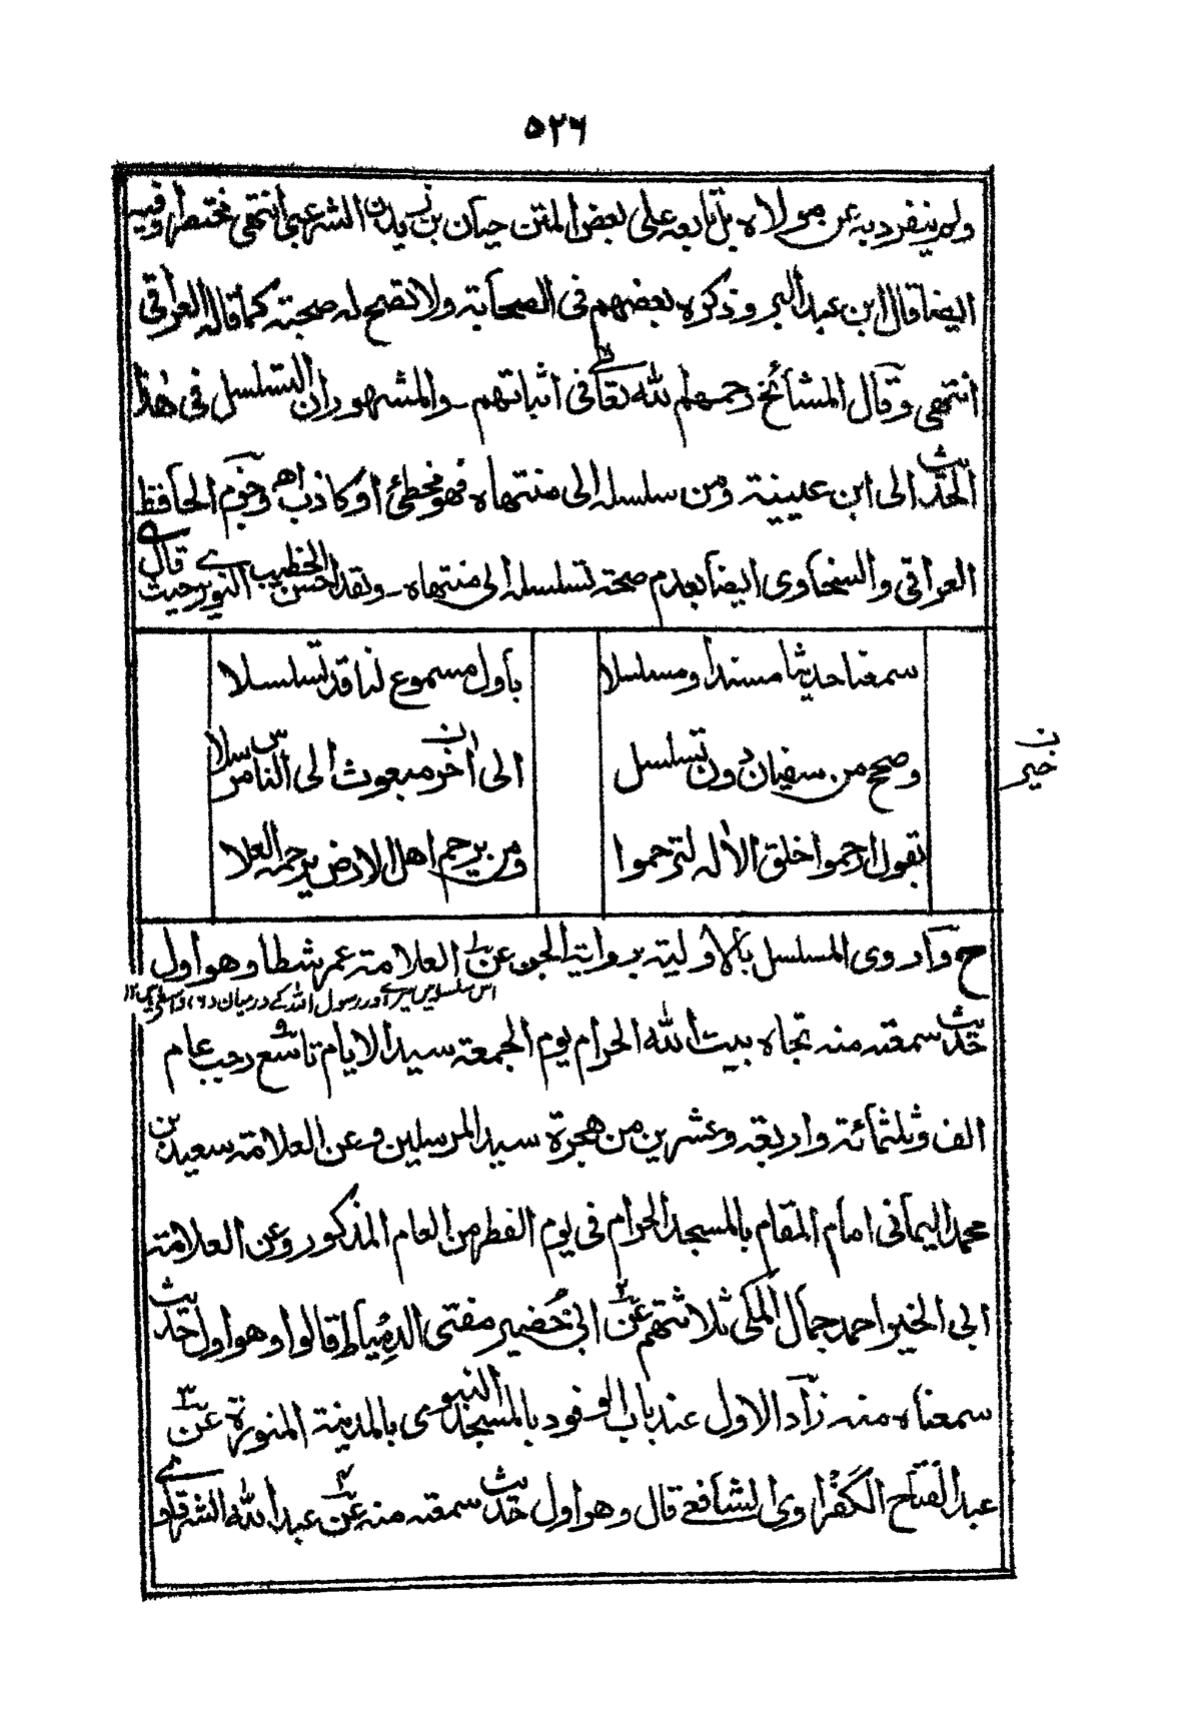 ٥٢٦
ولم ينفرد به عن مولاه بل تابعه على بعض المتن حيان بن زيد ن الشرعبي انتهى مختصرا وفيه
ايضا قال ابن عبد البر وذكره بعضهم فى الصحابة ولا تصح له صحبته كما قاله العراقى
انتهى وقال المشائخ رحمهم الله تعالى فى اثباتهم ـ والمشهور ان التسلسل فى هذا
الحديث الى ابن عيينة ومن سلسله الى منتهاه فهو مخطئ او كاذب اهـ وجزم الحافظ
العراقى والسخاوى ايضا بعدم صحة تسلسله الى منتهاه ـ ولقد احسن الخطيب النويرى حيث قال
سمعنا حديثا مسندا ومسلسلا باول مسموع لنا قد تسلسلا
وصح من سفيان دون تسلسل الى آخر مبعوث الى الناس مرسلا
ن خير
يقول ارحموا خلق الاله لترحموا ومن يرحم اهل الارض يرحمه العلا
ح وارروى المسلسل بالاولية برواية الجن عن العلامة عمر شطا وهو اول
اس سلسلہ میں میرے اور رسول اللہ کے درمیان (٦) واسطے ہیں ١٢
حديث سمعته منه تجاه بيت الله الحرام يوم الجمعة سيد الايام تاسع رجب عام
الف وثلثمائة واربعة وعشرين من هجرة سيد المرسلين وعن العلامة سعيد بن
محمد اليمانى امام المقام بالمسجد الحرام فى يوم الفطر من العام المذكور وعن العلامة
ابى الخير احمد جمال المكى ثلاثتهم عن ٢ ابى خضير مفتى الدمياط قالوا وهو اول حديث
سمعناه منه زاد الاول عند باب الوفود بالمسجد النبوى بالمدينة المنورة عن ٣
عبد الفتاح الكفراوى الشافعى قال وهو اول حديث سمعته منه عن ٤ عبد الله الشرقاوى